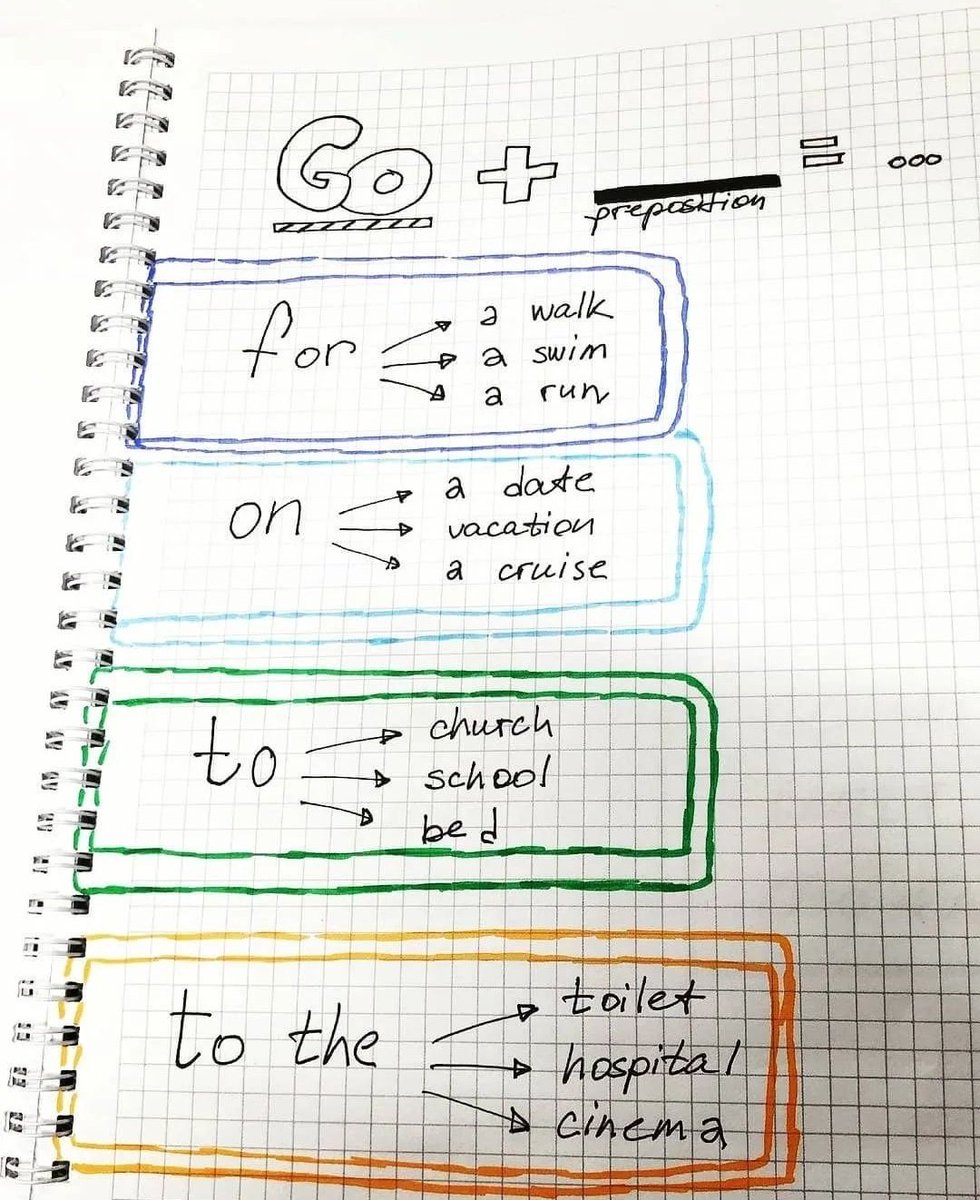 Go + ___ = ...
preposition
for
a walk
a swim
a run
on
a date
vacation
a cruise
to
church
school
bed
to the
toilet
hospital
cinema